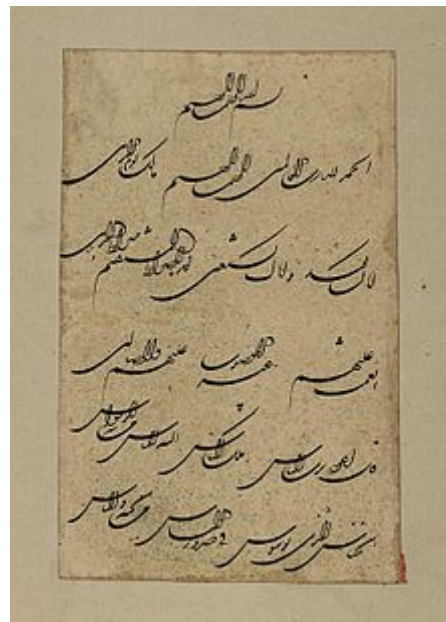 بسم الله الرحمن الرحيم
الحمد لله رب العالمين الرحمن الرحيم مالك يوم الدين
اياك نعبد و اياك نستعين اهدنا الصراط المستقيم صراط الذين
انعمت عليهم غير المغضوب عليهم ولا الضالين
قل اعوذ برب الناس ملك الناس اله الناس من شر الوسواس
الخناس الذي يوسوس في صدور الناس من الجنة و الناس